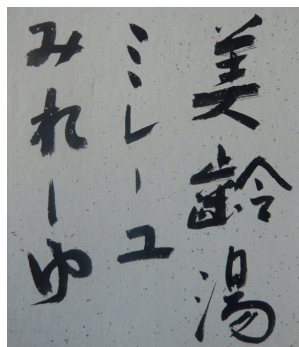 美齢湯
ミレーユ
みれーゆ